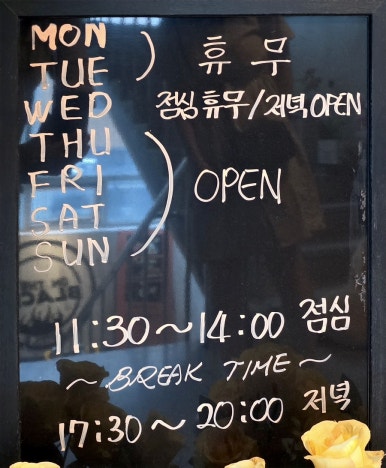 MON
TUE ) 휴무
WED 점심 휴무/저녁 OPEN
THU
FRI
SAT ) OPEN
SUN
11:30~14:00 점심
~ BREAK TIME ~
17:30~20:00 저녁